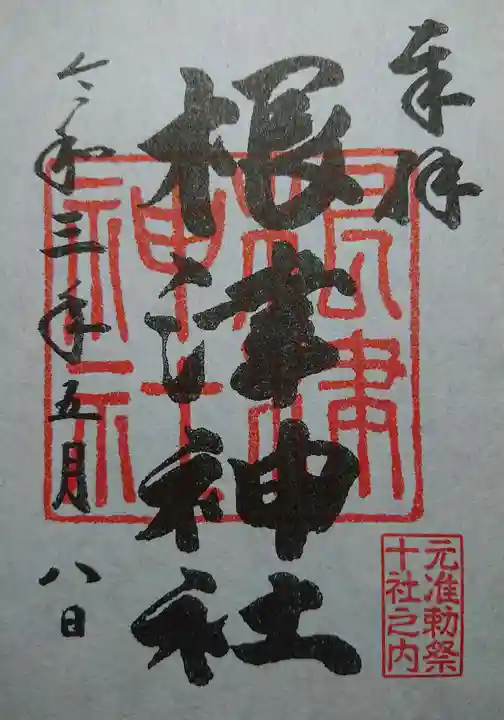 奉拝
根津神社
根津
神社
令和三年五月八日
元准勅祭
十社之内